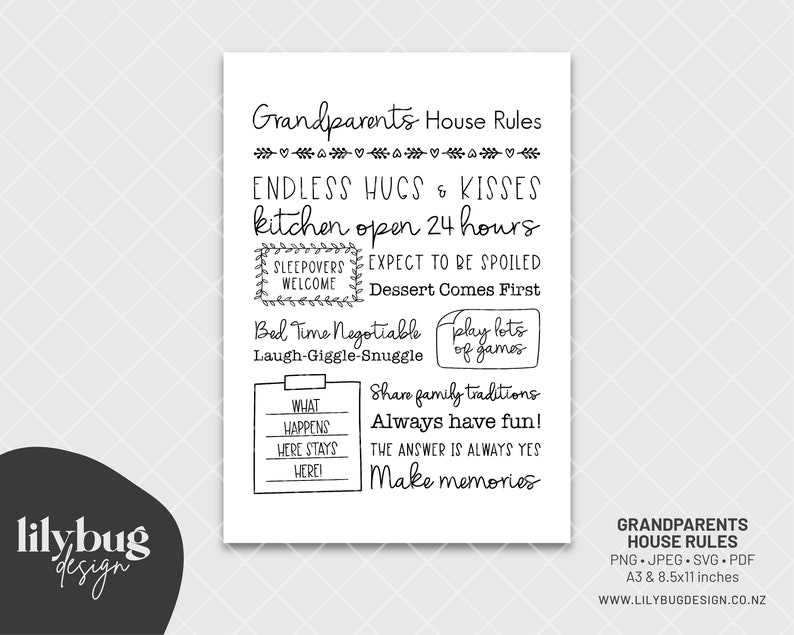 Grandparents House Rules
ENDLESS HUGS & KISSES
kitchen open 24 hours
SLEEPOVERS
WELCOME
EXPECT TO BE SPOILED
Dessert Comes First
Bed Time Negotiable
Laugh-Giggle-Snuggle
play lots
of games
WHAT
HAPPENS
HERE STAYS
HERE!
Share family traditions
Always have fun!
THE ANSWER IS ALWAYS YES
Make memories
lilybug
design
GRANDPARENTS
HOUSE RULES
PNG • JPEG • SVG • PDF
A3 & 8.5x11 inches
WWW.LILYBUGDESIGN.CO.NZ